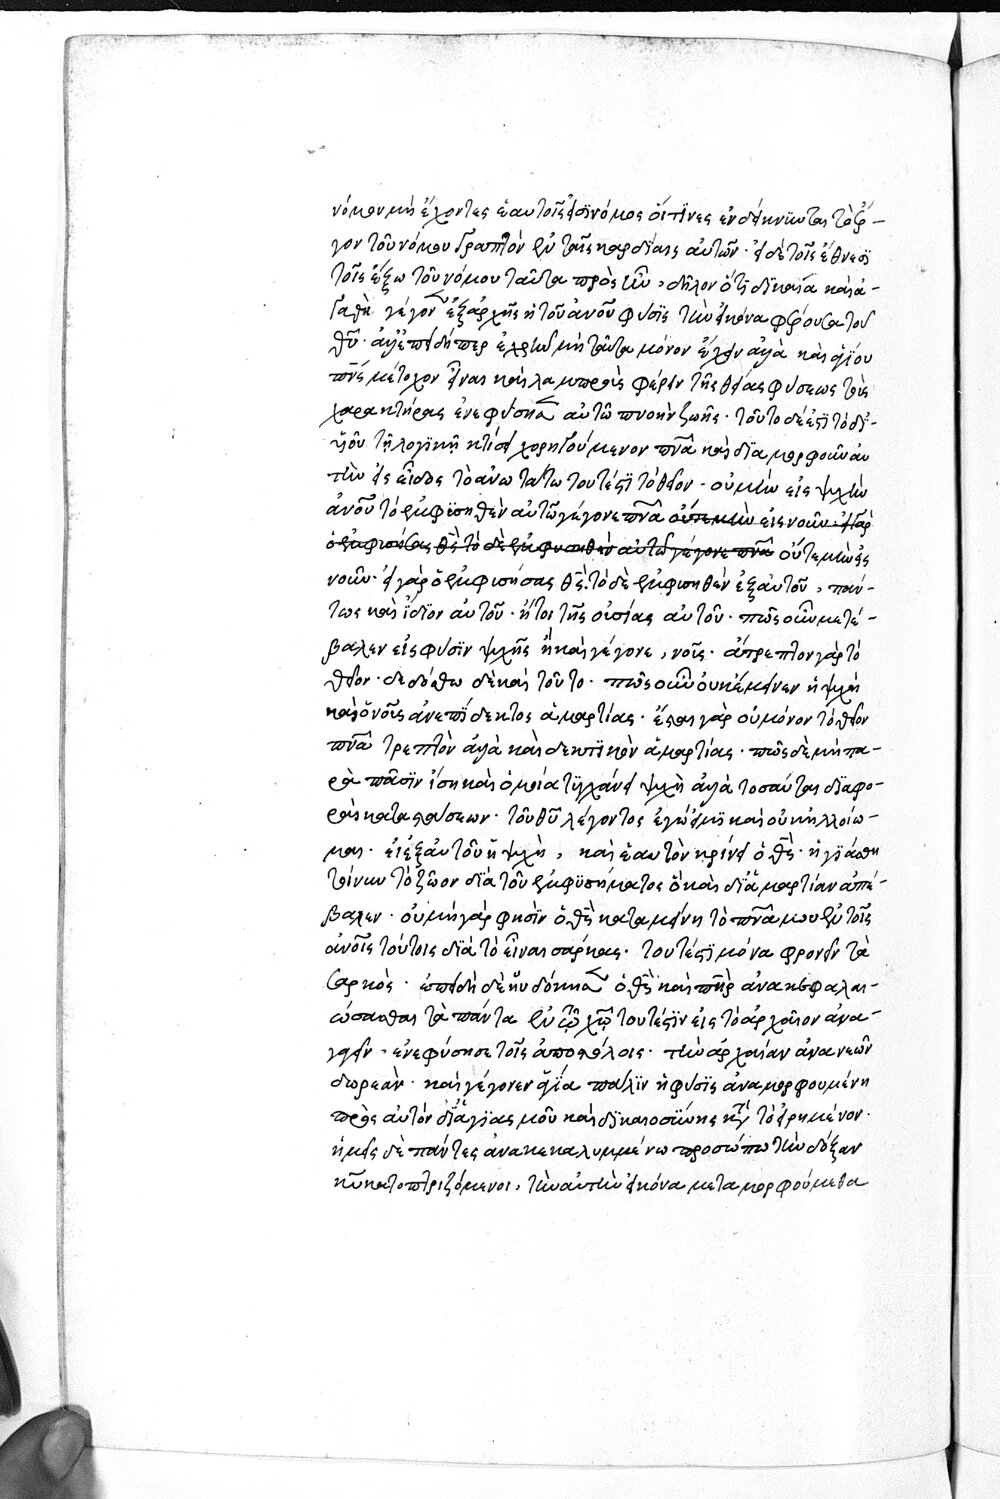 νόμον μὴ ἔχοντες ἑαυτοῖς εἰσὶ νόμος οἵτινες ἐνδείκνυνται τὸ ἔρ-
γον τοῦ νόμου γραπτὸν ἐν ταῖς καρδίαις αὐτῶν· εἰ δὲ τοῖς ἔθνεσι
τοῖς ἔξω τοῦ νόμου ταῦτα πρόσεστιν, δῆλον ὅτι δικαία καὶ ἀ-
γαθὴ γέγονεν ἐξ ἀρχῆς ἡ τοῦ ἀνου φύσις τὴν εἰκόνα φέρουσα τοῦ
θυ· ἀλλ' ἐπειδήπερ ἐχρῆν μὴ ταῦτα μόνον ἔχειν ἀλλὰ καὶ ἁγίου
πνς μέτοχον εἶναι καὶ λαμπροὺς φέρειν τῆς θείας φύσεως τοὺς
χαρακτήρας ἐνεφύσησεν αὐτῶ πνοὴν ζωῆς· τοῦτο δέ ἐστι τὸ δι'
υἱοῦ τῇ λογικῇ κτίσει χορηγούμενον πνα καὶ διαμορφοῦν αὐ
τὴν εἰς εἶδος τὸ ἀνωτάτω τουτέστι τὸ θεῖον· οὐ μὴν εἰς ψυχὴν
ἀνου τὸ ἐμφυσηθὲν αὐτῶ γέγονε πνα οὔτε μὴν εἰς νοῦν· εἰ γὰρ
ὁ ἐμφυσήσας θς τὸ δὲ ἐμφυσηθὲν αὐτῶ γέγονε πνα οὔτε μὴν εἰς
νοῦν· εἰ γὰρ ὁ ἐμφυσήσας θς· τὸ δὲ ἐμφυσηθὲν ἐξ αὐτοῦ, πάν-
τως καὶ ἴδιον αὐτοῦ· ἤτοι τῆς οὐσίας αὐτοῦ· πῶς οὖν μετέ-
βαλεν εἰς φύσιν ψυχῆς ἢ καὶ γέγονε, νοῦς· ἄτρεπτον γὰρ τὸ
θεῖον· δεδόσθω δὲ καὶ τοῦτο· πῶς οὖν οὐκ ἔμεινεν ἡ ψυχὴ
καὶ ὁ νοῦς ἀνεπίδεκτος ἁμαρτίας· ἔσται γὰρ οὐ μόνον τὸ θεῖον
πνα τρεπτὸν ἀλλὰ καὶ δεκτικὸν ἁμαρτίας· πῶς δὲ μὴ πα-
ρὰ πᾶσιν ἴση καὶ ὁμοία τυγχάνει ψυχὴ ἀλλὰ τοσαῦται διαφο-
ραὶ καταστάσεων· τοῦ θυ λέγοντος ἐγώ εἰμι καὶ οὐκ ἠλλοίω-
μαι· εἰ ἐξ αὐτοῦ ἡ ψυχὴ, καὶ ἑαυτὸν κρίνει ὁ θς· ἡγιάσθη
τοίνυν τὸ ζῶον διὰ τοῦ ἐμφυσήματος ὃ καὶ δι' ἁμαρτίαν ἀπέ-
βαλεν· οὐ μὴ γὰρ φησὶν ὁ θς καταμείνῃ τὸ πνα μου ἐν τοῖς
ἀνοις τούτοις διὰ τὸ εἶναι σάρκας· τουτέστι μόνα φρονεῖν τὰ
σαρκὸς· ἐπειδὴ δὲ ηὐδόκησεν ὁ θς καὶ πηρ ἀνακεφαλαι-
ώσασθαι τὰ πάντα ἐν τῷ χῷ τουτέστιν εἰς τὸ ἀρχαῖον ἀνα-
γαγεῖν· ἐνεφύσησε τοῖς ἀποστόλοις· τὴν ἀρχαίαν ἀνανεῶν
δωρεὰν· καὶ γέγονεν ἁγία πάλιν ἡ φύσις ἀναμορφουμένη
πρὸς αὐτὸν δι' ἁγιασμοῦ καὶ δικαιοσύνης κατὰ τὸ εἰρημένον·
ἡμεῖς δὲ πάντες ἀνακεκαλυμμένω προσώπω τὴν δόξαν
κυ κατοπτριζόμενοι, τὴν αὐτὴν εἰκόνα μεταμορφούμεθα